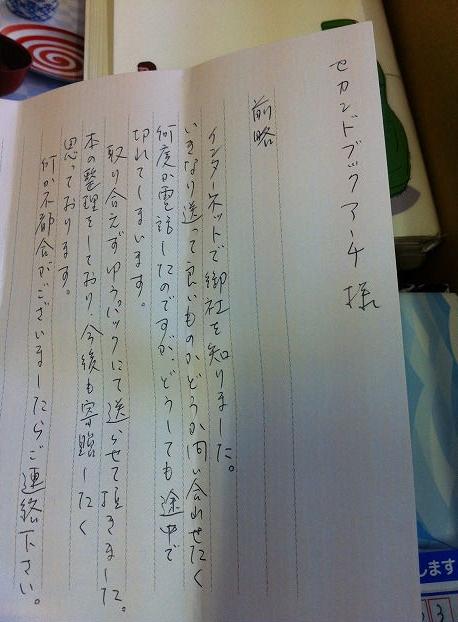 セカンドブックアーチ 様
前略
インターネットで御社を知りました。
いきなり送って良いものかどうか問い合わせたく
何度か電話したのですが、どうしても途中で
切れてしまいます。
取り合えずゆうパックにて送らせて頂きました。
本の整理をしており、今後も寄贈したく
思っております。
何か不都合がございましたらご連絡下さい。
します
3